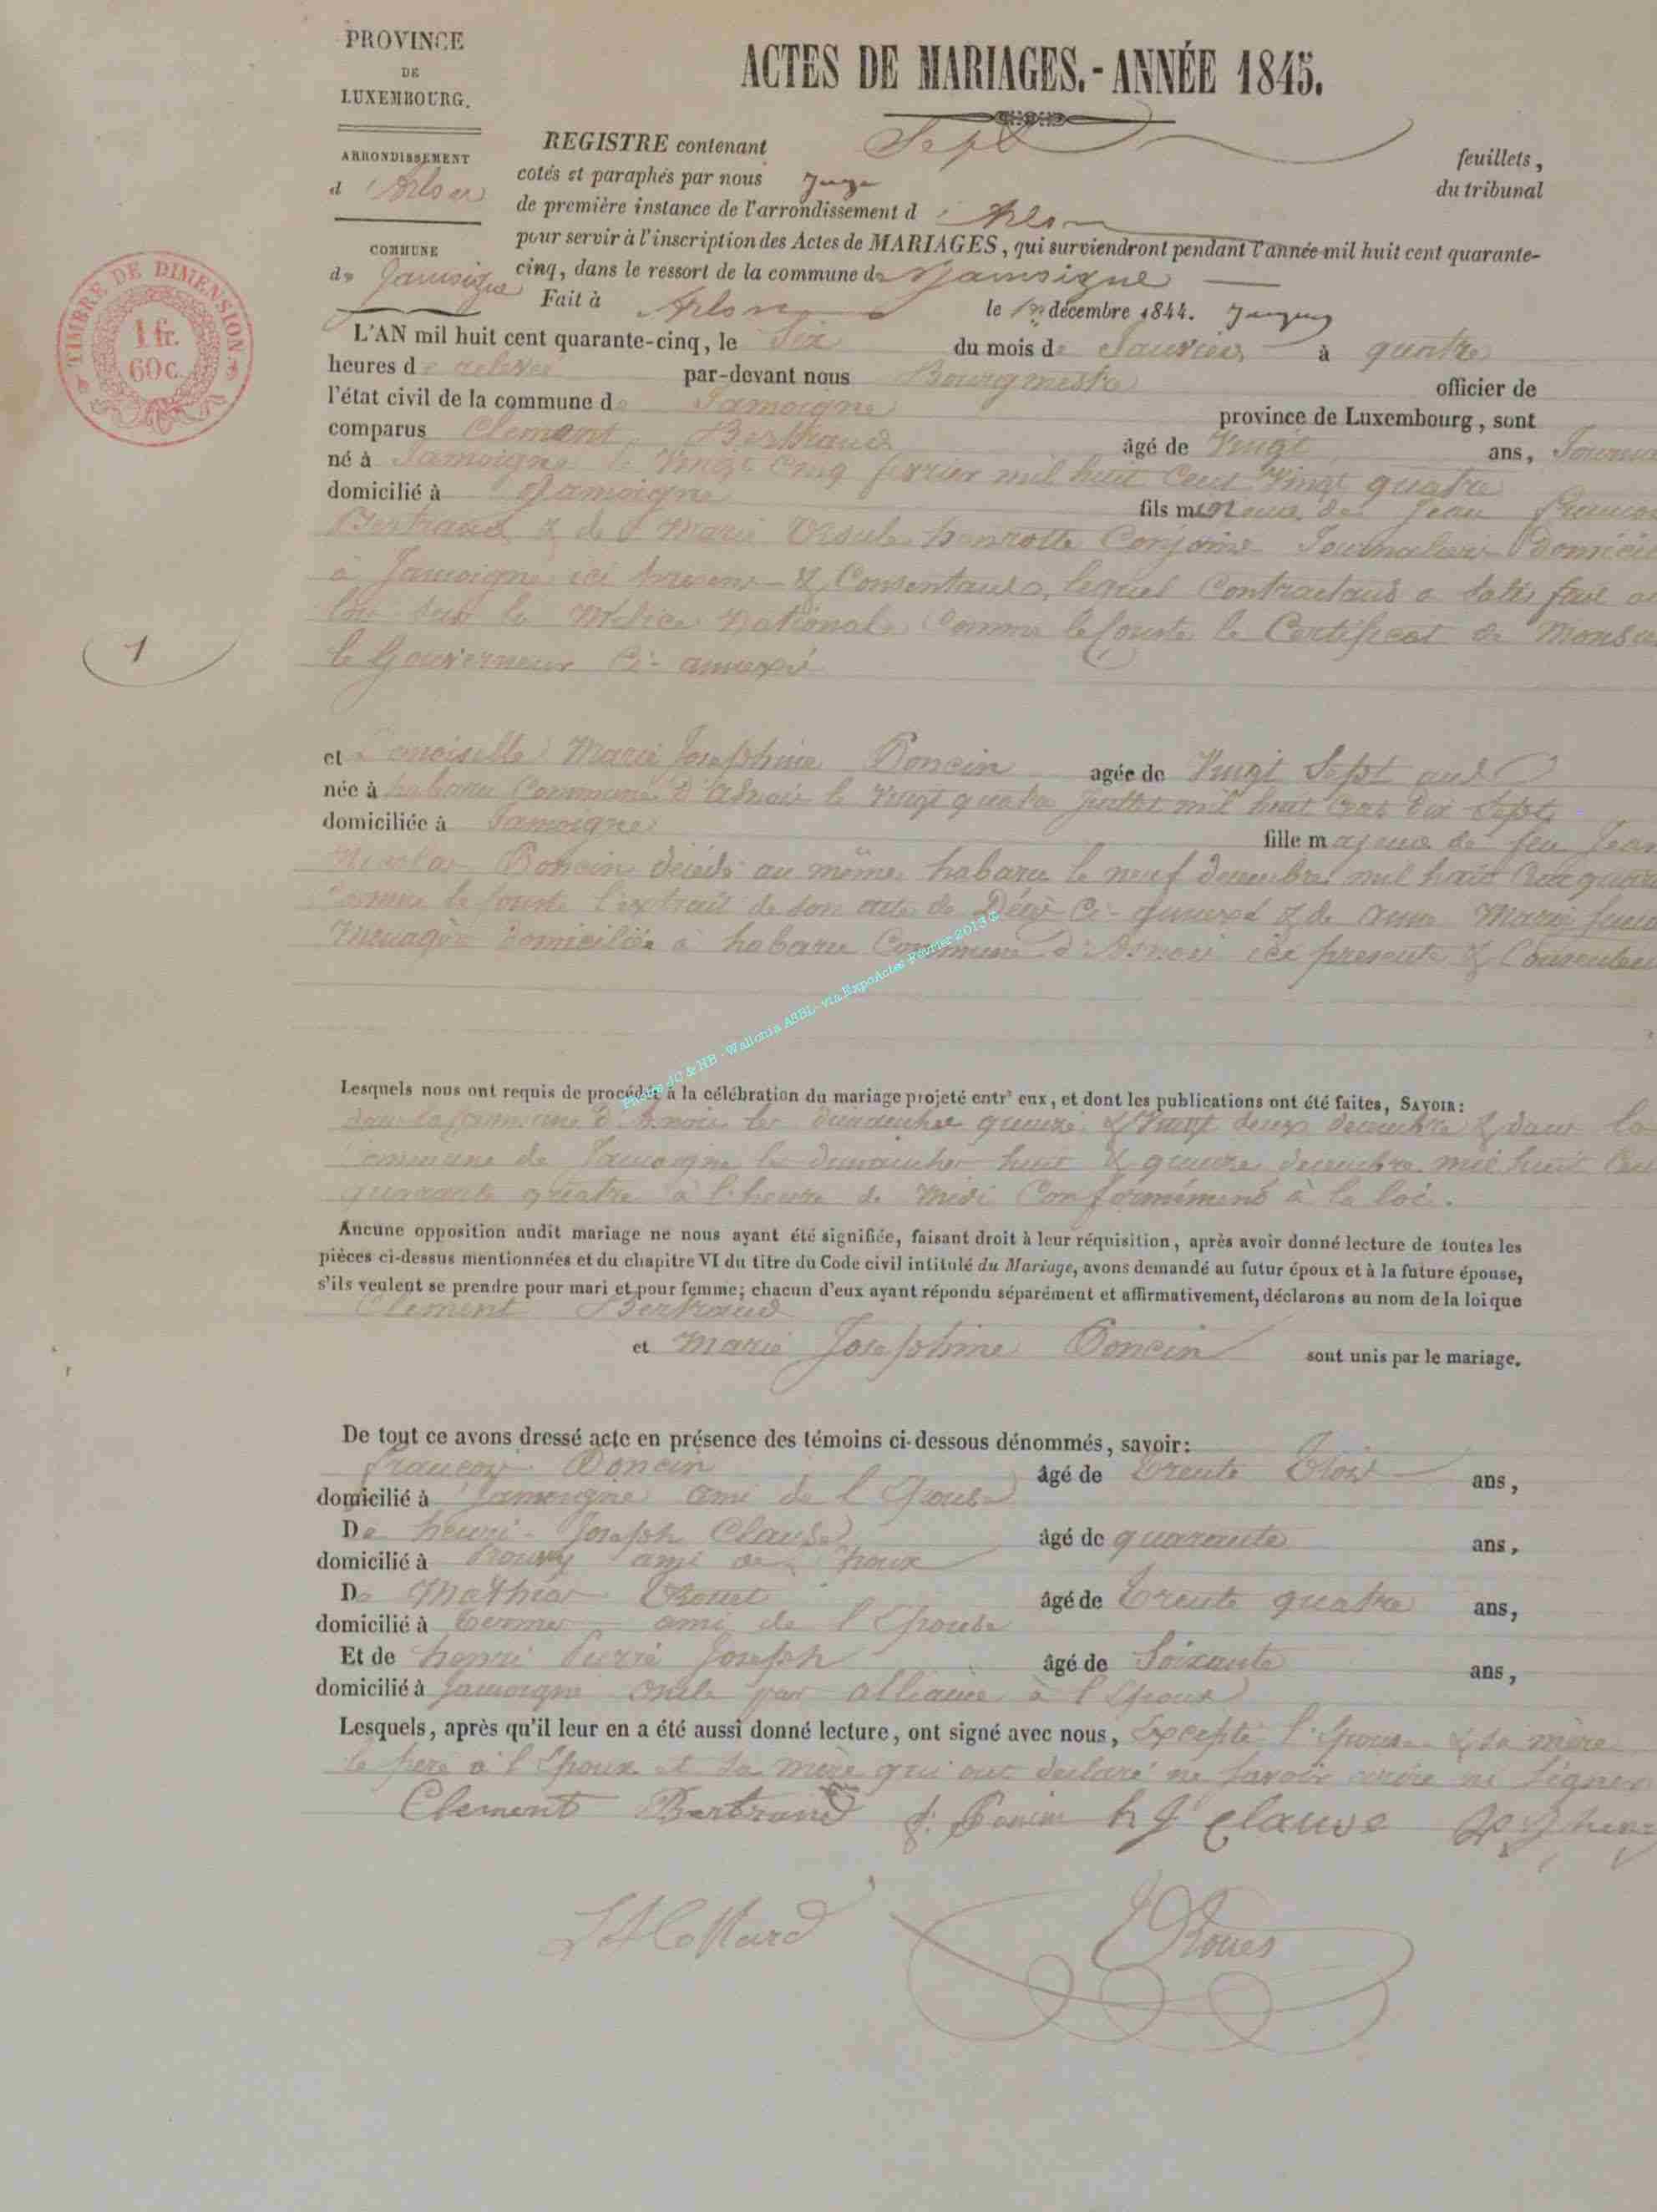 PROVINCE
DE
LUXEMBOURG.
ARRONDISSEMENT
d'Arlon
COMMUNE
de Jamoigne
TIMBRE DE DIMENSION
1 fr.
60 c.
ACTES DE MARIAGES.-ANNÉE 1845.
REGISTRE contenant Sept feuillets,
cotés et paraphés par nous Juge du tribunal
de première instance de l'arrondissement d'Arlon
pour servir à l'inscription des Actes de MARIAGES, qui surviendront pendant l'année mil huit cent quarante-
cinq, dans le ressort de la commune de Jamoigne
Fait à Arlon le décembre 1844.
L'AN mil huit cent quarante-cinq, le Six du mois de Janvier à quatre
heures de relevée par-devant nous Bourgmestre officier de
l'état civil de la commune de Jamoigne province de Luxembourg, sont
comparus Clement Bertrand âgé de Vingt ans,
né à Jamoigne le Vingt Cinq fevrier mil huit Cent Vingt quatre
domicilié à Jamoigne fils mineur de Jean
Bertrand & de Marie Ursule henrotte Conjoins Journaliers
à Jamoigne ici & Consentans, lequel Contractant a
sur la Milice National Comme le Conste le Certificat de
le Gouverneur Ci-annexé
1
et Demoiselle Marie Josephine Poncin agée de Vingt Sept ans
née à habaru Commune d' le Vingt quatre Juillet mil huit Cent dix Sept
domiciliée à Jamoigne fille majeure de feu Jean
Nicolas Poncin décédé au même habaru le neuf decembre mil huit Cent
Comme le Conste l'extrait de son acte de Décès Ci-annexé & de anne Marie
Menagère domiciliée à habaru Commune d' ici presente &
Photos JC & HB - Wallonia ASBL - via ExpoActes Février 2013 ©
Lesquels nous ont requis de procéder à la célébration du mariage projeté entr' eux, et dont les publications ont été faites, SAVOIR:
dans la Commune d' les dimanches quinze & Vingt deux decembre & dans la
Commune de Jamoigne le dimanche huit & quinze decembre mil huit Cent
quarante quatre à l'heure de Midi Conformément à la loi.
Aucune opposition audit mariage ne nous ayant été signifiée, faisant droit à leur réquisition, après avoir donné lecture de toutes les
pièces ci-dessus mentionnées et du chapitre VI du titre du Code civil intitulé du Mariage, avons demandé au futur époux et à la future épouse,
s'ils veulent se prendre pour mari et pour femme; chacun d'eux ayant répondu séparément et affirmativement, déclarons au nom de la loi que
Clement Bertrand
et Marie Josephine Poncin sont unis par le mariage.
De tout ce avons dressé acte en présence des témoins ci-dessous dénommés, savoir:
françois Poncin âgé de trente trois ans,
domicilié à Jamoigne ami de l'Epouse
De henri Joseph Clause âgé de quarante ans,
domicilié à Prouvy ami de
De Mathias âgé de trente quatre ans,
domicilié à Termes ami de l'Epouse
Et de henri Pierre Joseph âgé de Soixante ans,
domicilié à Jamoigne oncle par alliance à l'Epoux
Lesquels, après qu'il leur en a été aussi donné lecture, ont signé avec nous, Excepté l'Epouse & sa mère
le pere à l'Epoux et sa mère qui ont declaré ne Savoir ni Signer
Clement Bertrand f. Poncin h J Clause